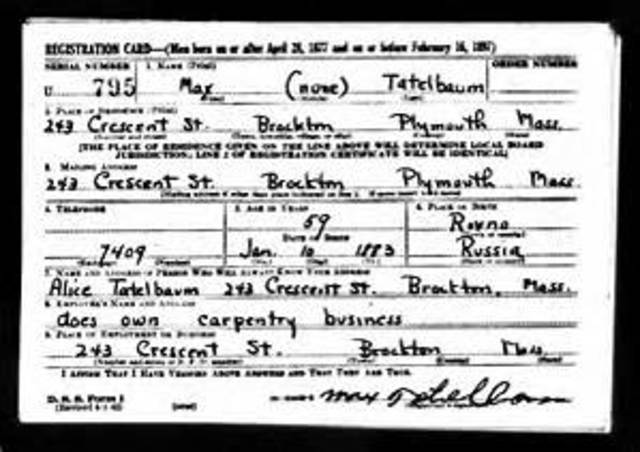 REGISTRATION CARD—(Men born on or after April 28, 1877 and on or before February 16, 1897)
SERIAL NUMBER 1. NAME (Print) ORDER NUMBER
U 795 Max (none) Tatelbaum
2. PLACE OF RESIDENCE (Print)
243 Crescent St. Brockton Plymouth Mass.
[THE PLACE OF RESIDENCE GIVEN ON THE LINE ABOVE WILL DETERMINE LOCAL BOARD
JURISDICTION; LINE 2 OF REGISTRATION CERTIFICATE WILL BE IDENTICAL]
3. MAILING ADDRESS
243 Crescent St. Brockton Plymouth Mass.
4. TELEPHONE 5. AGE IN YEARS 6. PLACE OF BIRTH
59 Rovno
DATE OF BIRTH
7409 Jan. 10 1883 Russia
7. NAME AND ADDRESS OF PERSON WHO WILL ALWAYS KNOW YOUR ADDRESS
Alice Tatelbaum 243 Crescent St. Brockton, Mass.
8. EMPLOYER'S NAME AND ADDRESS
does own carpentry business
9. PLACE OF EMPLOYMENT OR BUSINESS
243 Crescent St. Brockton Mass.
I AFFIRM THAT I HAVE VERIFIED ABOVE ANSWERS AND THAT THEY ARE TRUE.
D. S. S. Form 1 Max Tatelbaum